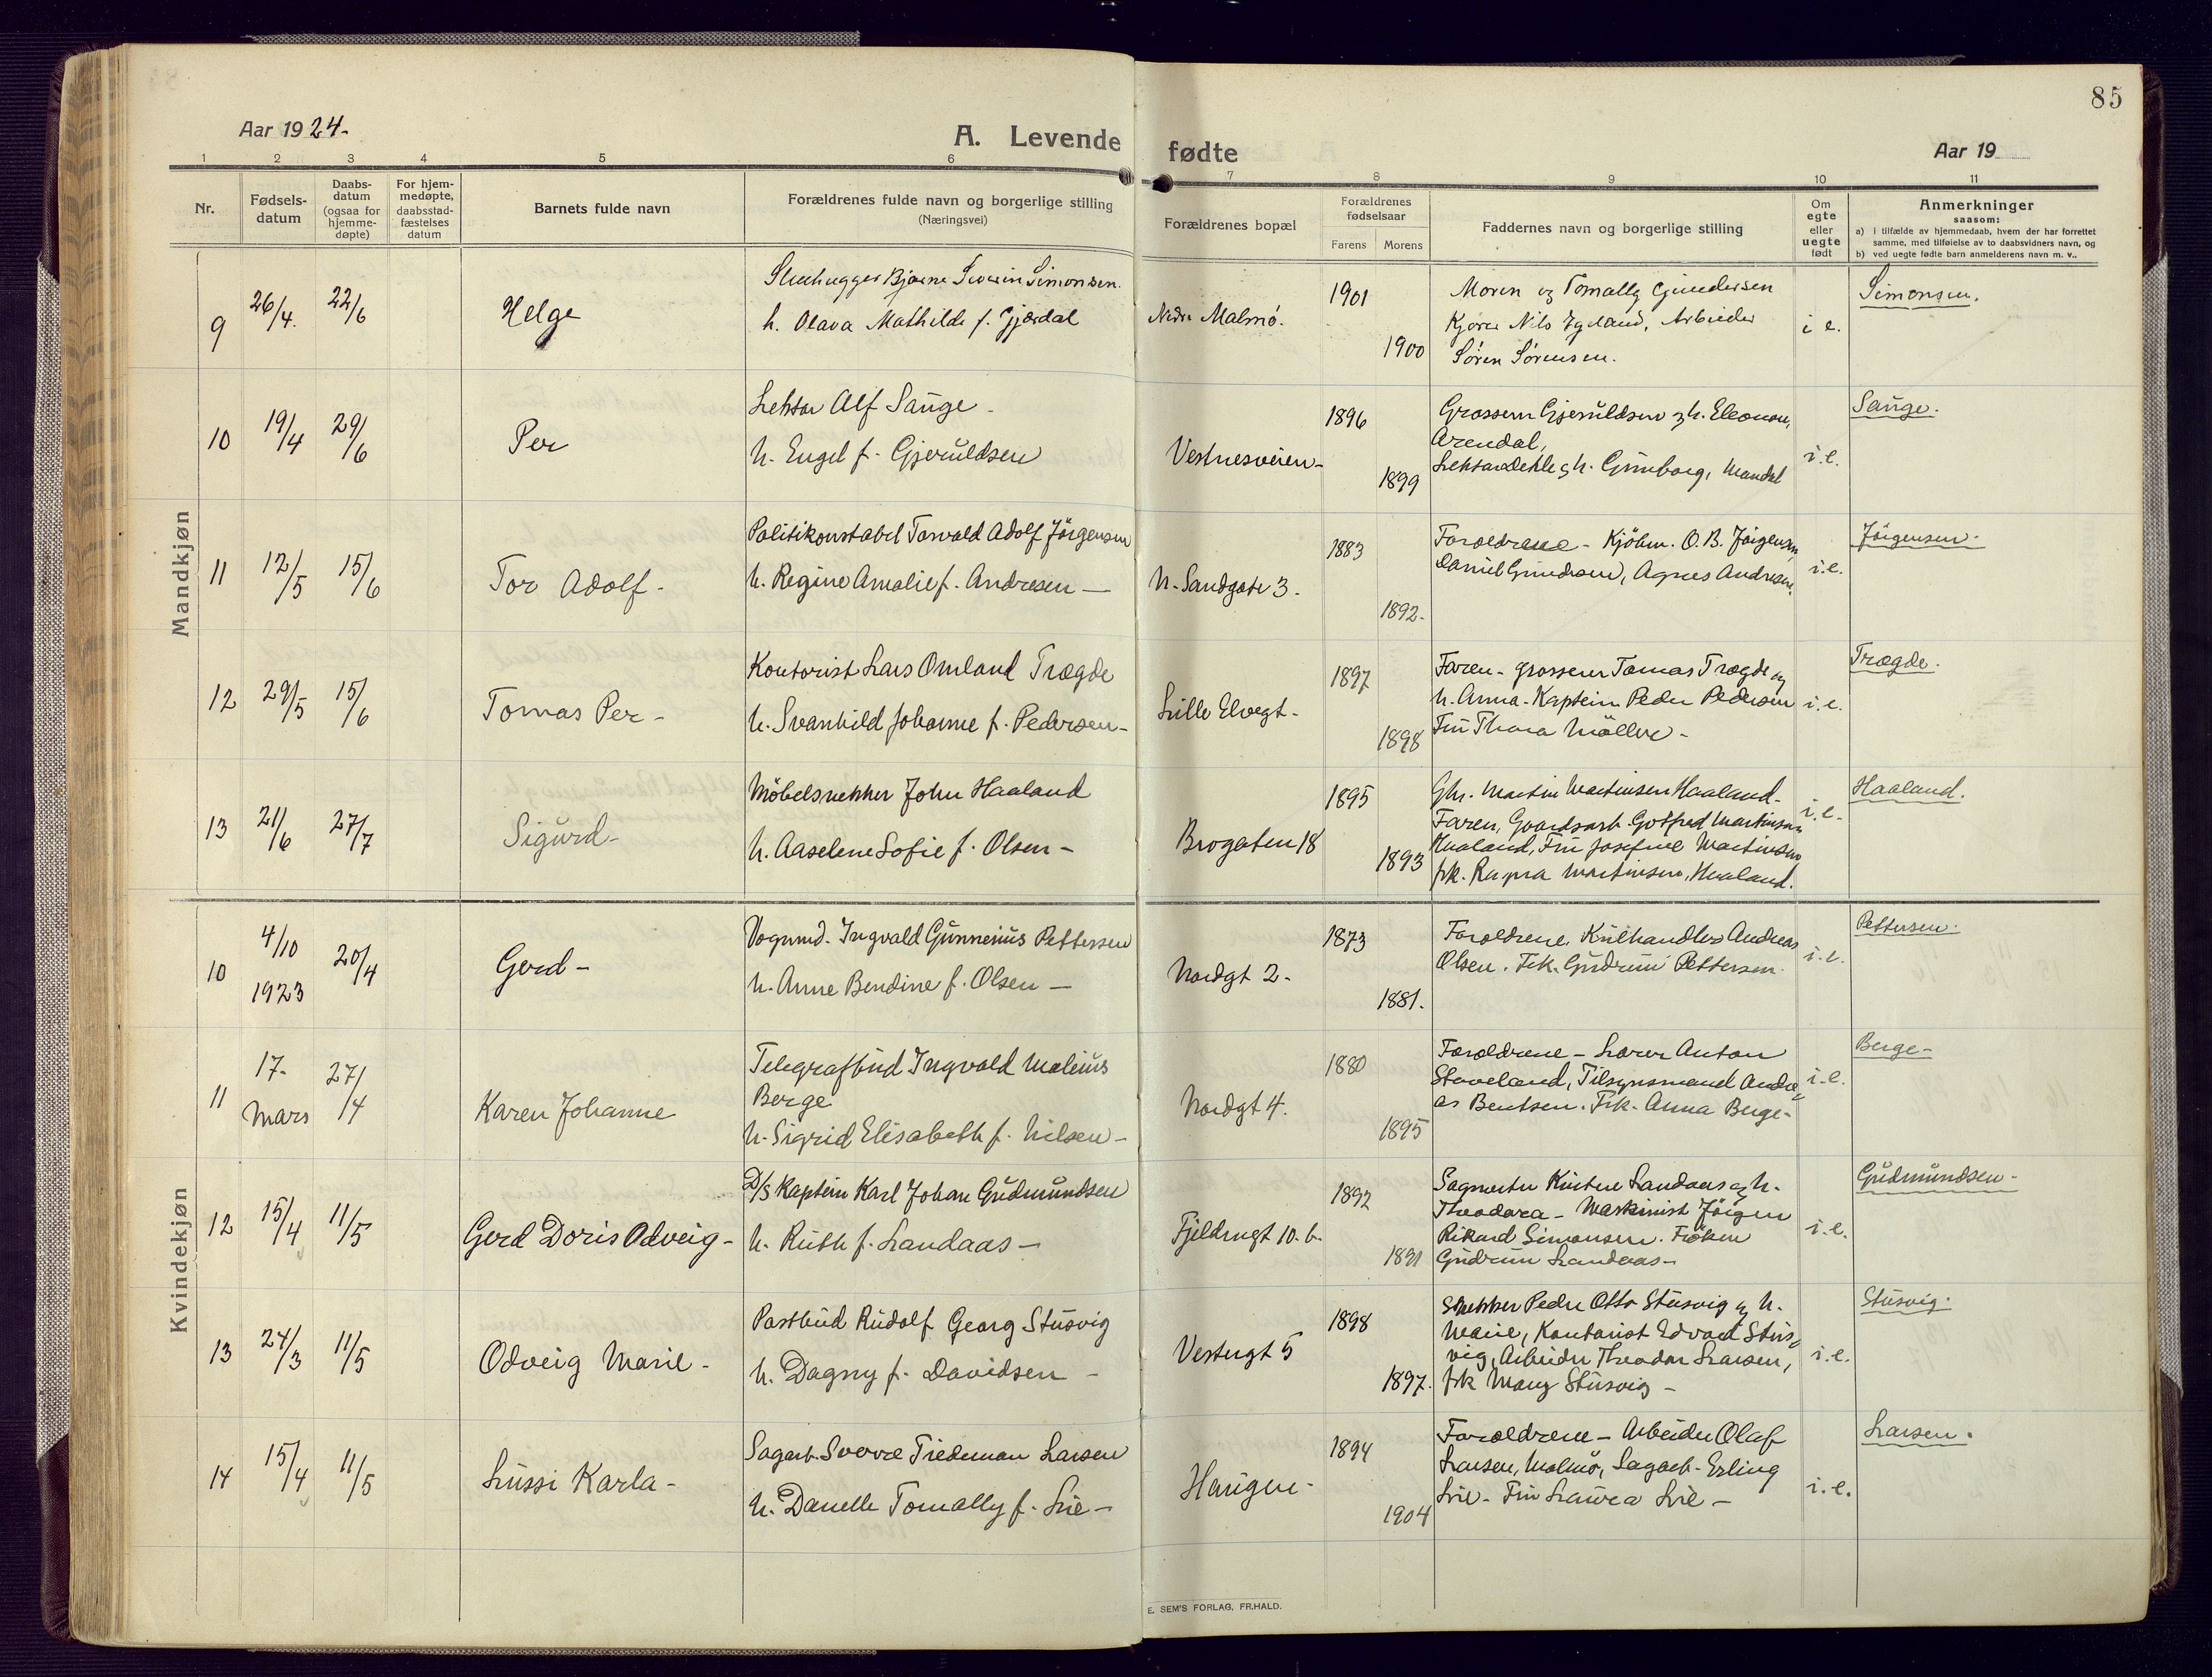 85
Aar 1924-
A. Levende fødte
Aar 19
1 2 3 4 5 6 7 8 9 10 11
Nr.
Fødsels-
datum
Daabs-
datum
(ogsaa for
hjemme-
døpte)
For hjem-
medøpte,
daabsstad-
fæstelses
datum
Barnets fulde navn
Forældrenes fulde navn og borgerlige stilling
(Næringsvei)
Forældrenes bopæl
Forældrenes
fødselsaar
Farens Morens
Faddernes navn og borgerlige stilling
Om
egte
eller
uegte
født
Anmerkninger
saasom:
a) i tilfælde av hjemmedaab, hvem der har forrettet
samme, med tilføielse av to daabsvidners navn, og
b) ved uegte fødte barn anmelderens navn m. v..
Mandkjøn
9 26/4. 22/6 Helge
Stenhugger Bjarne Severin Simonsen.
h. Olava Mathilde f. Gjærdal
Nedre Malmö.
1901
1900
Moren og Tomally Gundersen
Kjører Nils Igeland, Arbeider
Sören Sörensen.
i e.
Simonsen.
10 19/4 29/6 Per
Lektor Alf Sauge -
h. Engel f. Gjeruldsen
Vestnesveien -
1896
1899
Grosserer Gjeruldsen og h. Eleonore,
Arendal,
Lektor Dehle og h. Gunborg, Mandal
i.e.
Sauge.
11 12/5 15/6 Tor Adolf -
Politikonstabel Torvald Adolf Jörgensen
h. Regine Amalie f. Andresen -
N. Sandgate 3.
1883
1892.
Foroeldrene - Kjöbm. O.B. Jörgensen,
Daniel Gundersen, Agnes Andresen.
i.e.
Jörgensen.
12 29/5 15/6 Tomas Per -
Kontorist Lars Omland Trægde
h. Svanhild Johanne f. Pedersen -
Lille Elvegt -
1897
1898
Faren - grosserer Tomas Trægde og
h. Anna - Kaptein Peder Pedersen
Fru Thora Möller -
i.e.
Trægde.
13 21/6 27/7 Sigurd -
Möbelsnekker John Haaland
h. Aaselene Sofie f. Olsen -
Brogaten 18
1895
1893
Ghr. Martin Martinsen Haaland -
Faren, Gaardsarb. Gotfred Martinsen
Haaland, Fru Josefine Martinsen
frk. Ragna Martinsen, Haaland.
i.e.
Haaland.
Kvindekjøn
10 4/10 1923 20/4 Gerd -
Vognmd. Ingvald Gunnenius Pettersen
h. Anne Bendine f. Olsen -
Nordgt 2 -
1873
1881.
Foroeldrene, Kulhandler Andreas
Olsen. Frk. Gudrun Pettersen.
i.e.
Pettersen.
11 17. Mars 27/4 Karen Johanne
Telegrafbud Ingvald Malenius
Berge
h. Sigrid Elisabeth f. Nilsen -
Nordgt 4.
1880
1895
Foroeldrene - Lærer Anton
Staveland, Tilsynsmand Andre-
as Bentsen. Frk. Anna Berge -
i.e.
Berge -
12 15/4 11/5 Gerd Doris Odveig -
D/S Kaptein Karl Johan Gudmundsen
h. Ruth f. Landaas -
Fjeldmgt 10. b.
1892
1891
Sagmester Landaas og h.
Theodora - Maskinist Jörgen
Rikard Simonsen. Fröken
Gudrun Landaas -
i.e.
Gudmundsen -
13 24/3 11/5 Odveig Marie -
Postbud Rudolf Georg Stusvig
h. Dagny f. Davidsen -
Vestergt 5
1898
1897.
Snekker Peder Otto Stusvig og h.
Marie, Kontorist Edvard Stus-
vig, Arbeider Theodor Larsen,
frk Mary Stusvig -
i.e.
Stusvig.
14 15/4 11/5 Lussi Karla -
Sagarb. Sverre Tiedeman Larsen
h. Danelle Tomally f. Lie -
Haugen -
1894
1904
Foroeldrene - Arbeider Olaf
Larsen, Malmö, Sagarb. Erling
Lie - Fru Laura Lie -
i.e.
Larsen.
E. SEM'S FORLAG, FR.HALD.